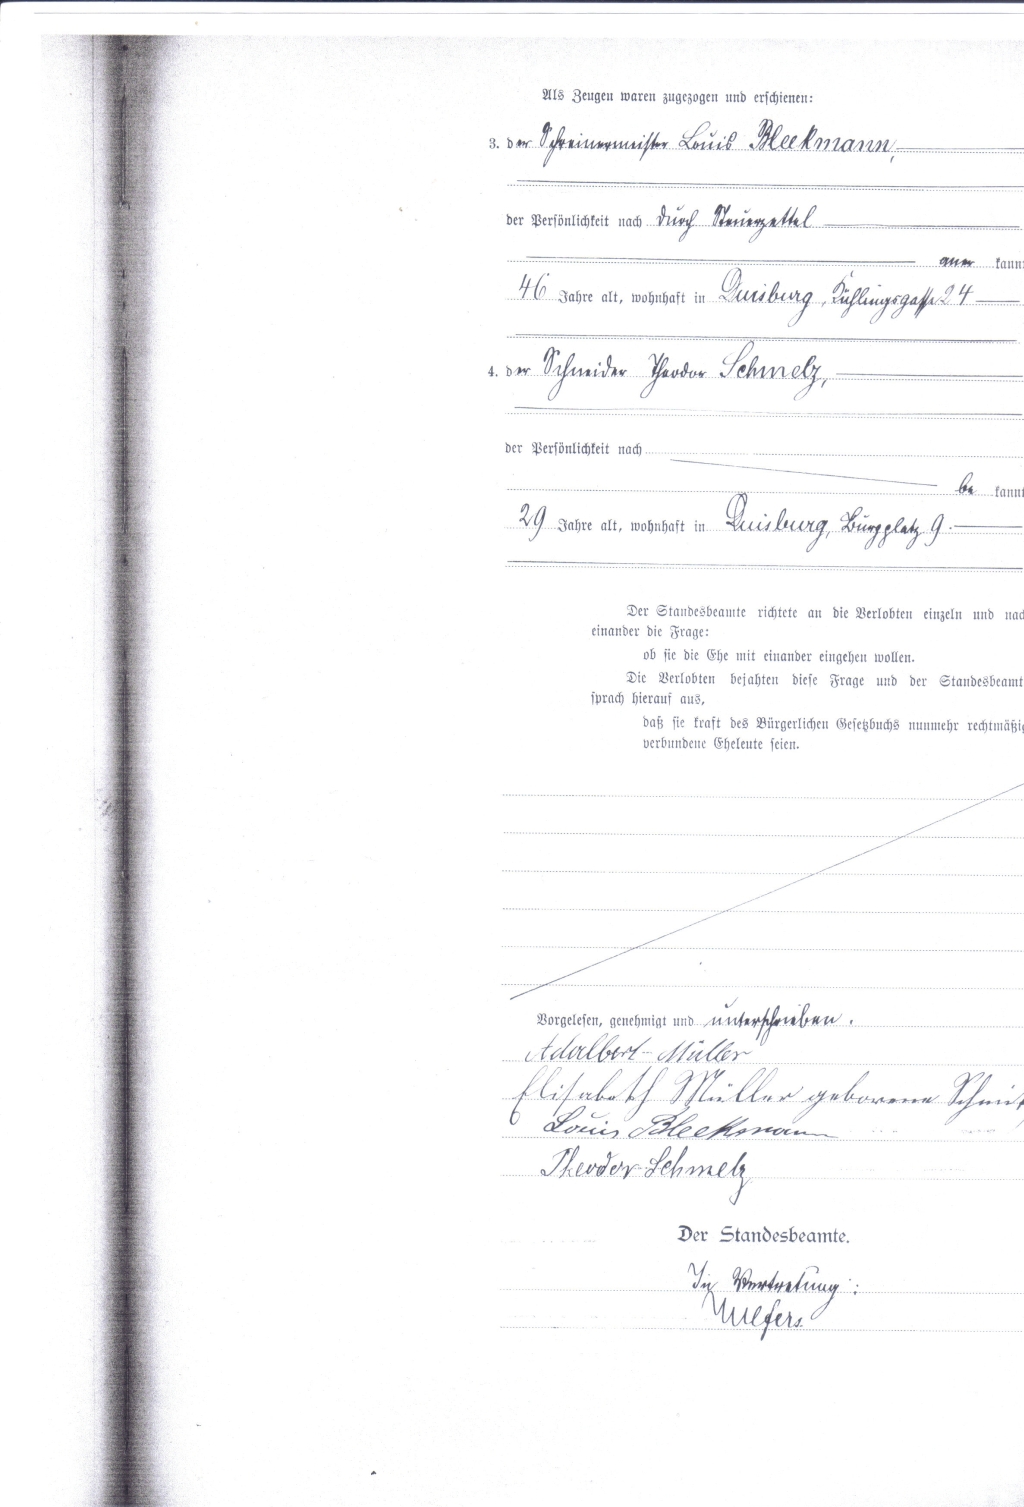 Als Zeugen waren zugezogen und erschienen:
3. der Schreinermeister Louis Bleekmann,
der Persönlichkeit nach durch Steuerzettel
aner kannt
46 Jahre alt, wohnhaft in Duisburg, Kühlingsgasse 24
4. der Schneider Theodor Schmelz,
der Persönlichkeit nach
be kannt
29 Jahre alt, wohnhaft in Duisburg, Burgplatz 9.
Der Standesbeamte richtete an die Verlobten einzeln und nach
einander die Frage:
ob sie die Ehe mit einander eingehen wollen.
Die Verlobten bejahten diese Frage und der Standesbeamt
sprach hierauf aus,
daß sie kraft des Bürgerlichen Gesetzbuchs nunmehr rechtmäßig
verbundene Eheleute seien.
Vorgelesen, genehmigt und unterschrieben.
Adalbert Müller
Elisabeth Müller geborene Schmit
Louis Bleekmann
Theodor Schmelz
Der Standesbeamte.
In Vertretung: